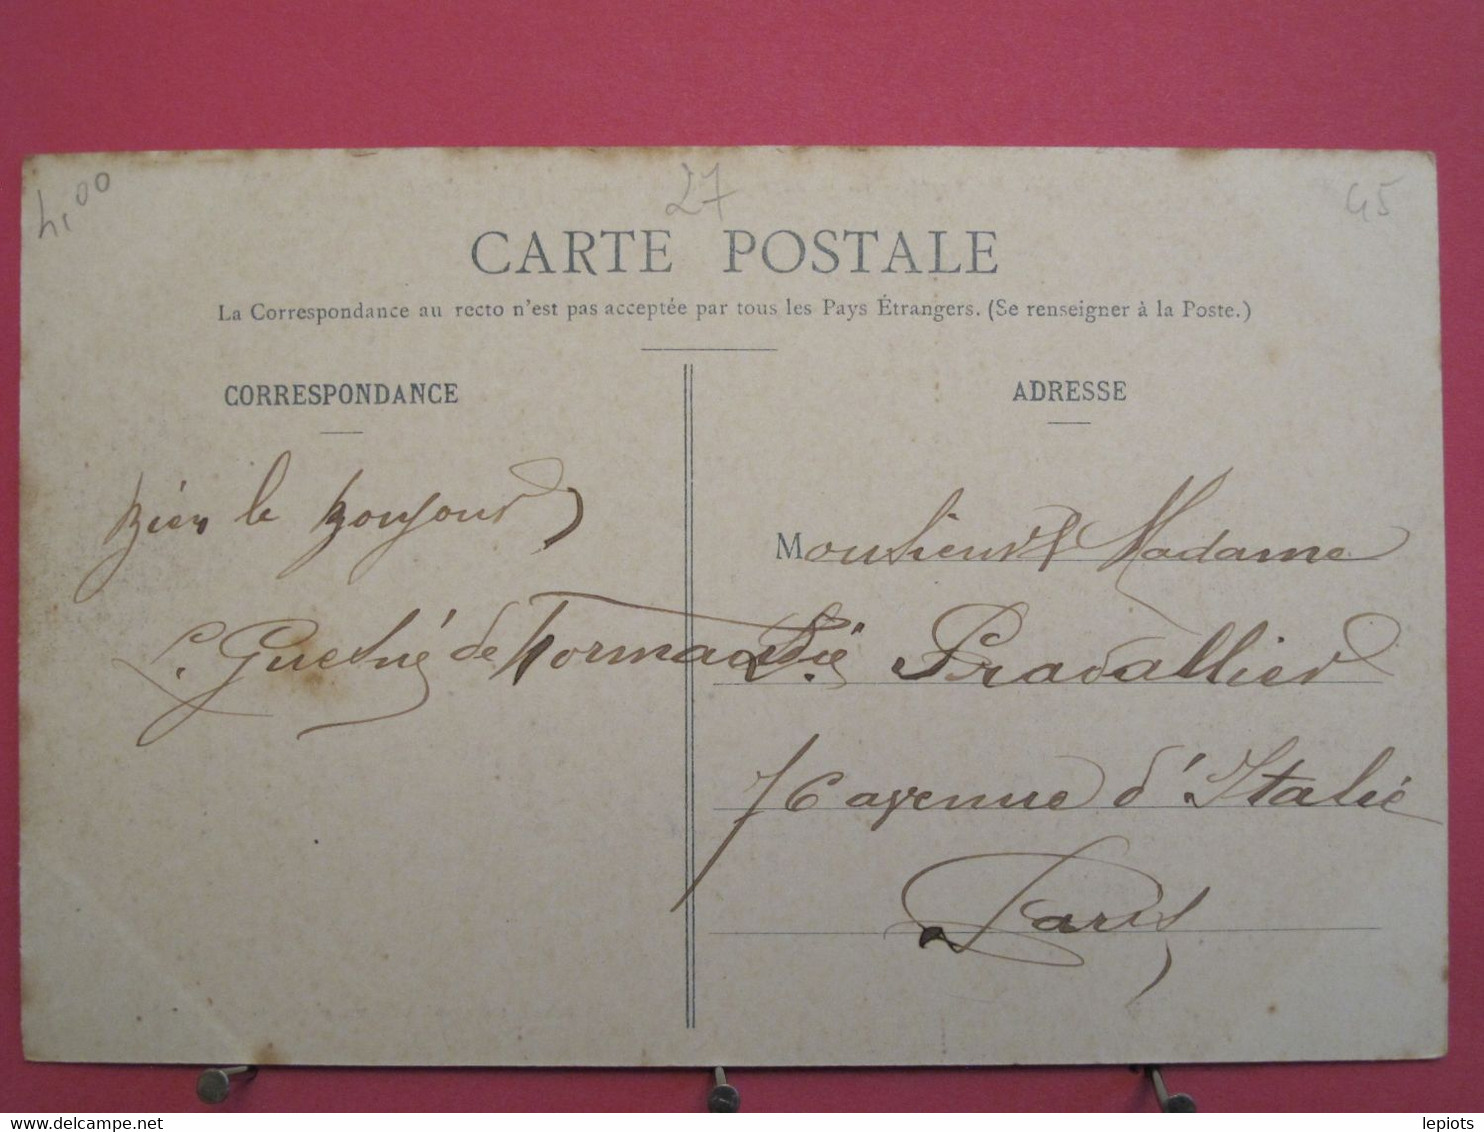 4,00
27
45
CARTE POSTALE
La Correspondance au recto n'est pas acceptée par tous les Pays Étrangers. (Se renseigner à la Poste.)
CORRESPONDANCE
bien le bonjour
L. Guesné de Normandie
ADRESSE
Monsieur & Madame
L. Pravallier
76 avenue d'Italie
Paris
Delcampe.net
lepiots